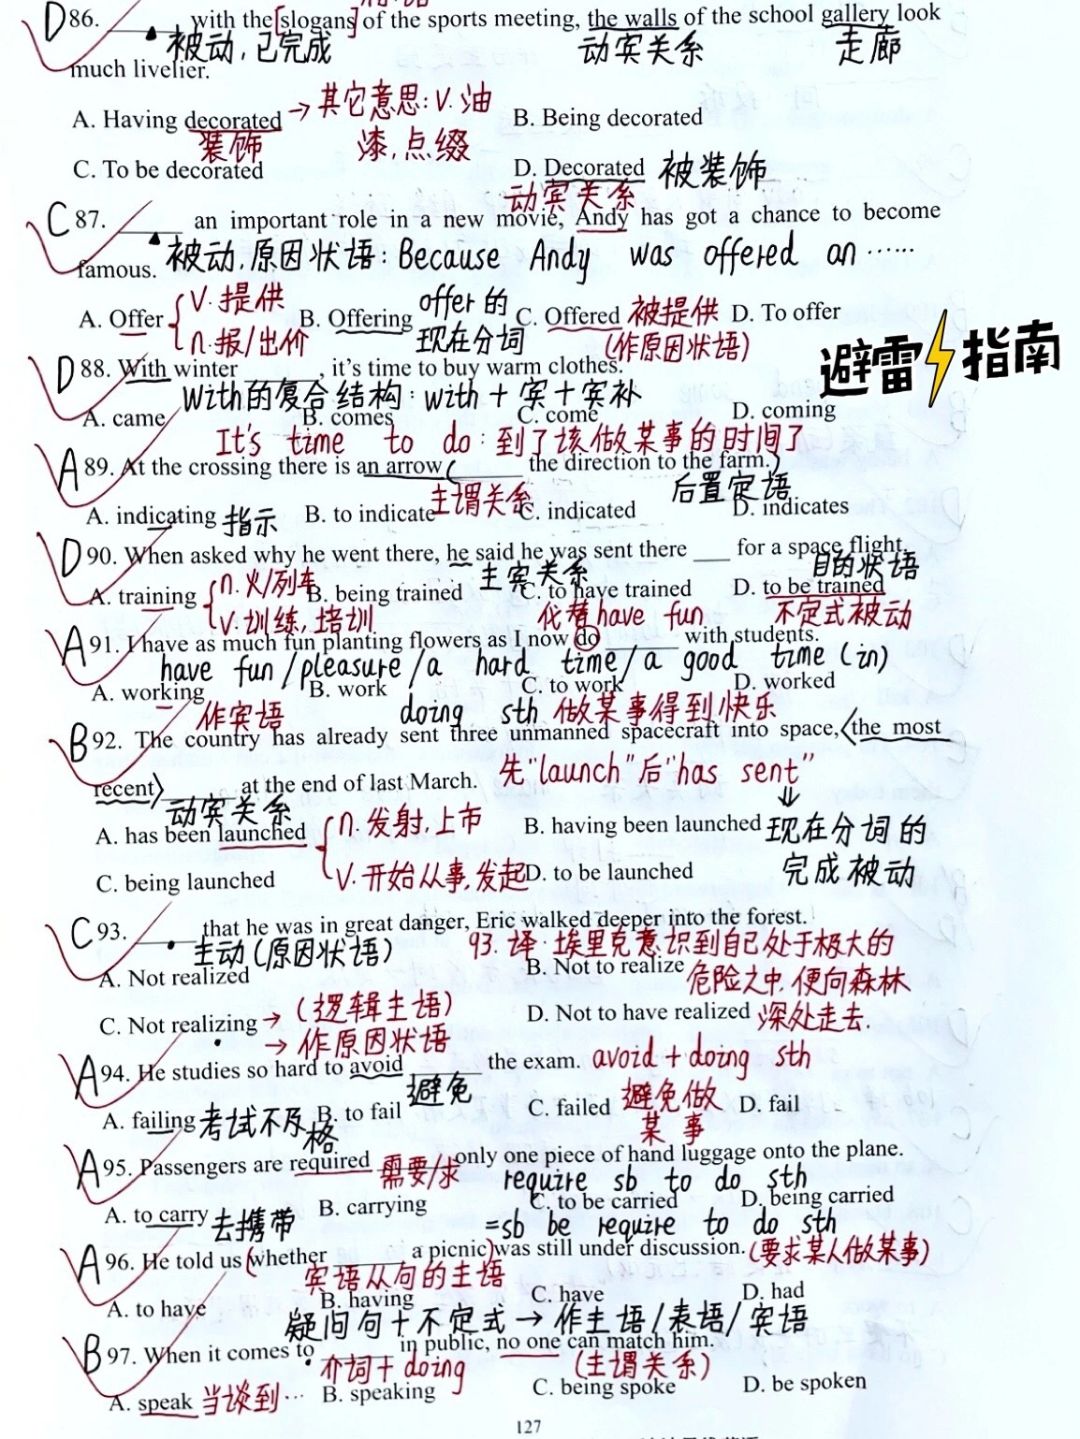 D86. ______ with the [slogans] of the sports meeting, the walls of the school gallery look
被动,已完成 动宾关系 走廊
much livelier.
A. Having decorated →其它意思:V.油 B. Being decorated
装饰 漆,点缀
C. To be decorated D. Decorated 被装饰
动宾关系
C87. ______ an important role in a new movie, Andy has got a chance to become
famous. 被动,原因状语: Because Andy was offered an ……
A. Offer { V.提供 B. Offering offer的 C. Offered 被提供 D. To offer
n.报/出价 现在分词 (作原因状语)
避雷⚡指南
D88. With winter ______, it's time to buy warm clothes.
With的复合结构:with+宾+宾补
A. came B. comes C. come D. coming
It's time to do:到了该做某事的时间了
A89. At the crossing there is an arrow (______ the direction to the farm.)
主谓关系 后置定语
A. indicating 指示 B. to indicate C. indicated D. indicates
D90. When asked why he went there, he said he was sent there ___ for a space flight.
主宾关系 目的状语
A. training { n.火/列车 B. being trained C. to have trained D. to be trained
V.训练,培训 代替have fun 不定式被动
A91. I have as much fun planting flowers as I now do ______ with students.
have fun/pleasure/a hard time/a good time (in)
A. working B. work C. to work D. worked
作宾语 doing sth 做某事得到快乐
B92. The country has already sent three unmanned spacecraft into space, <the most
先"launch"后"has sent"
recent> ______ at the end of last March.
动宾关系 ↓
A. has been launched { n.发射,上市 B. having been launched 现在分词的
V.开始从事,发起 完成被动
C. being launched D. to be launched
C93. ______ that he was in great danger, Eric walked deeper into the forest.
主动(原因状语) 93.译:埃里克意识到自己处于极大的
A. Not realized B. Not to realize 危险之中,便向森林
C. Not realizing →(逻辑主语) D. Not to have realized 深处走去.
→作原因状语
A94. He studies so hard to avoid ______ the exam. avoid+doing sth
避免 避免做
A. failing 考试不及格 B. to fail C. failed 某事 D. fail
A95. Passengers are required ______ only one piece of hand luggage onto the plane.
需要/求 require sb to do sth
A. to carry 去携带 B. carrying C. to be carried D. being carried
=sb be require to do sth
A96. He told us (whether ______ a picnic) was still under discussion. (要求某人做某事)
宾语从句的主语
A. to have B. having C. have D. had
疑问句+不定式→作主语/表语/宾语
B97. When it comes to ______ in public, no one can match him.
介词+doing (主谓关系)
A. speak 当谈到… B. speaking C. being spoke D. be spoken
127